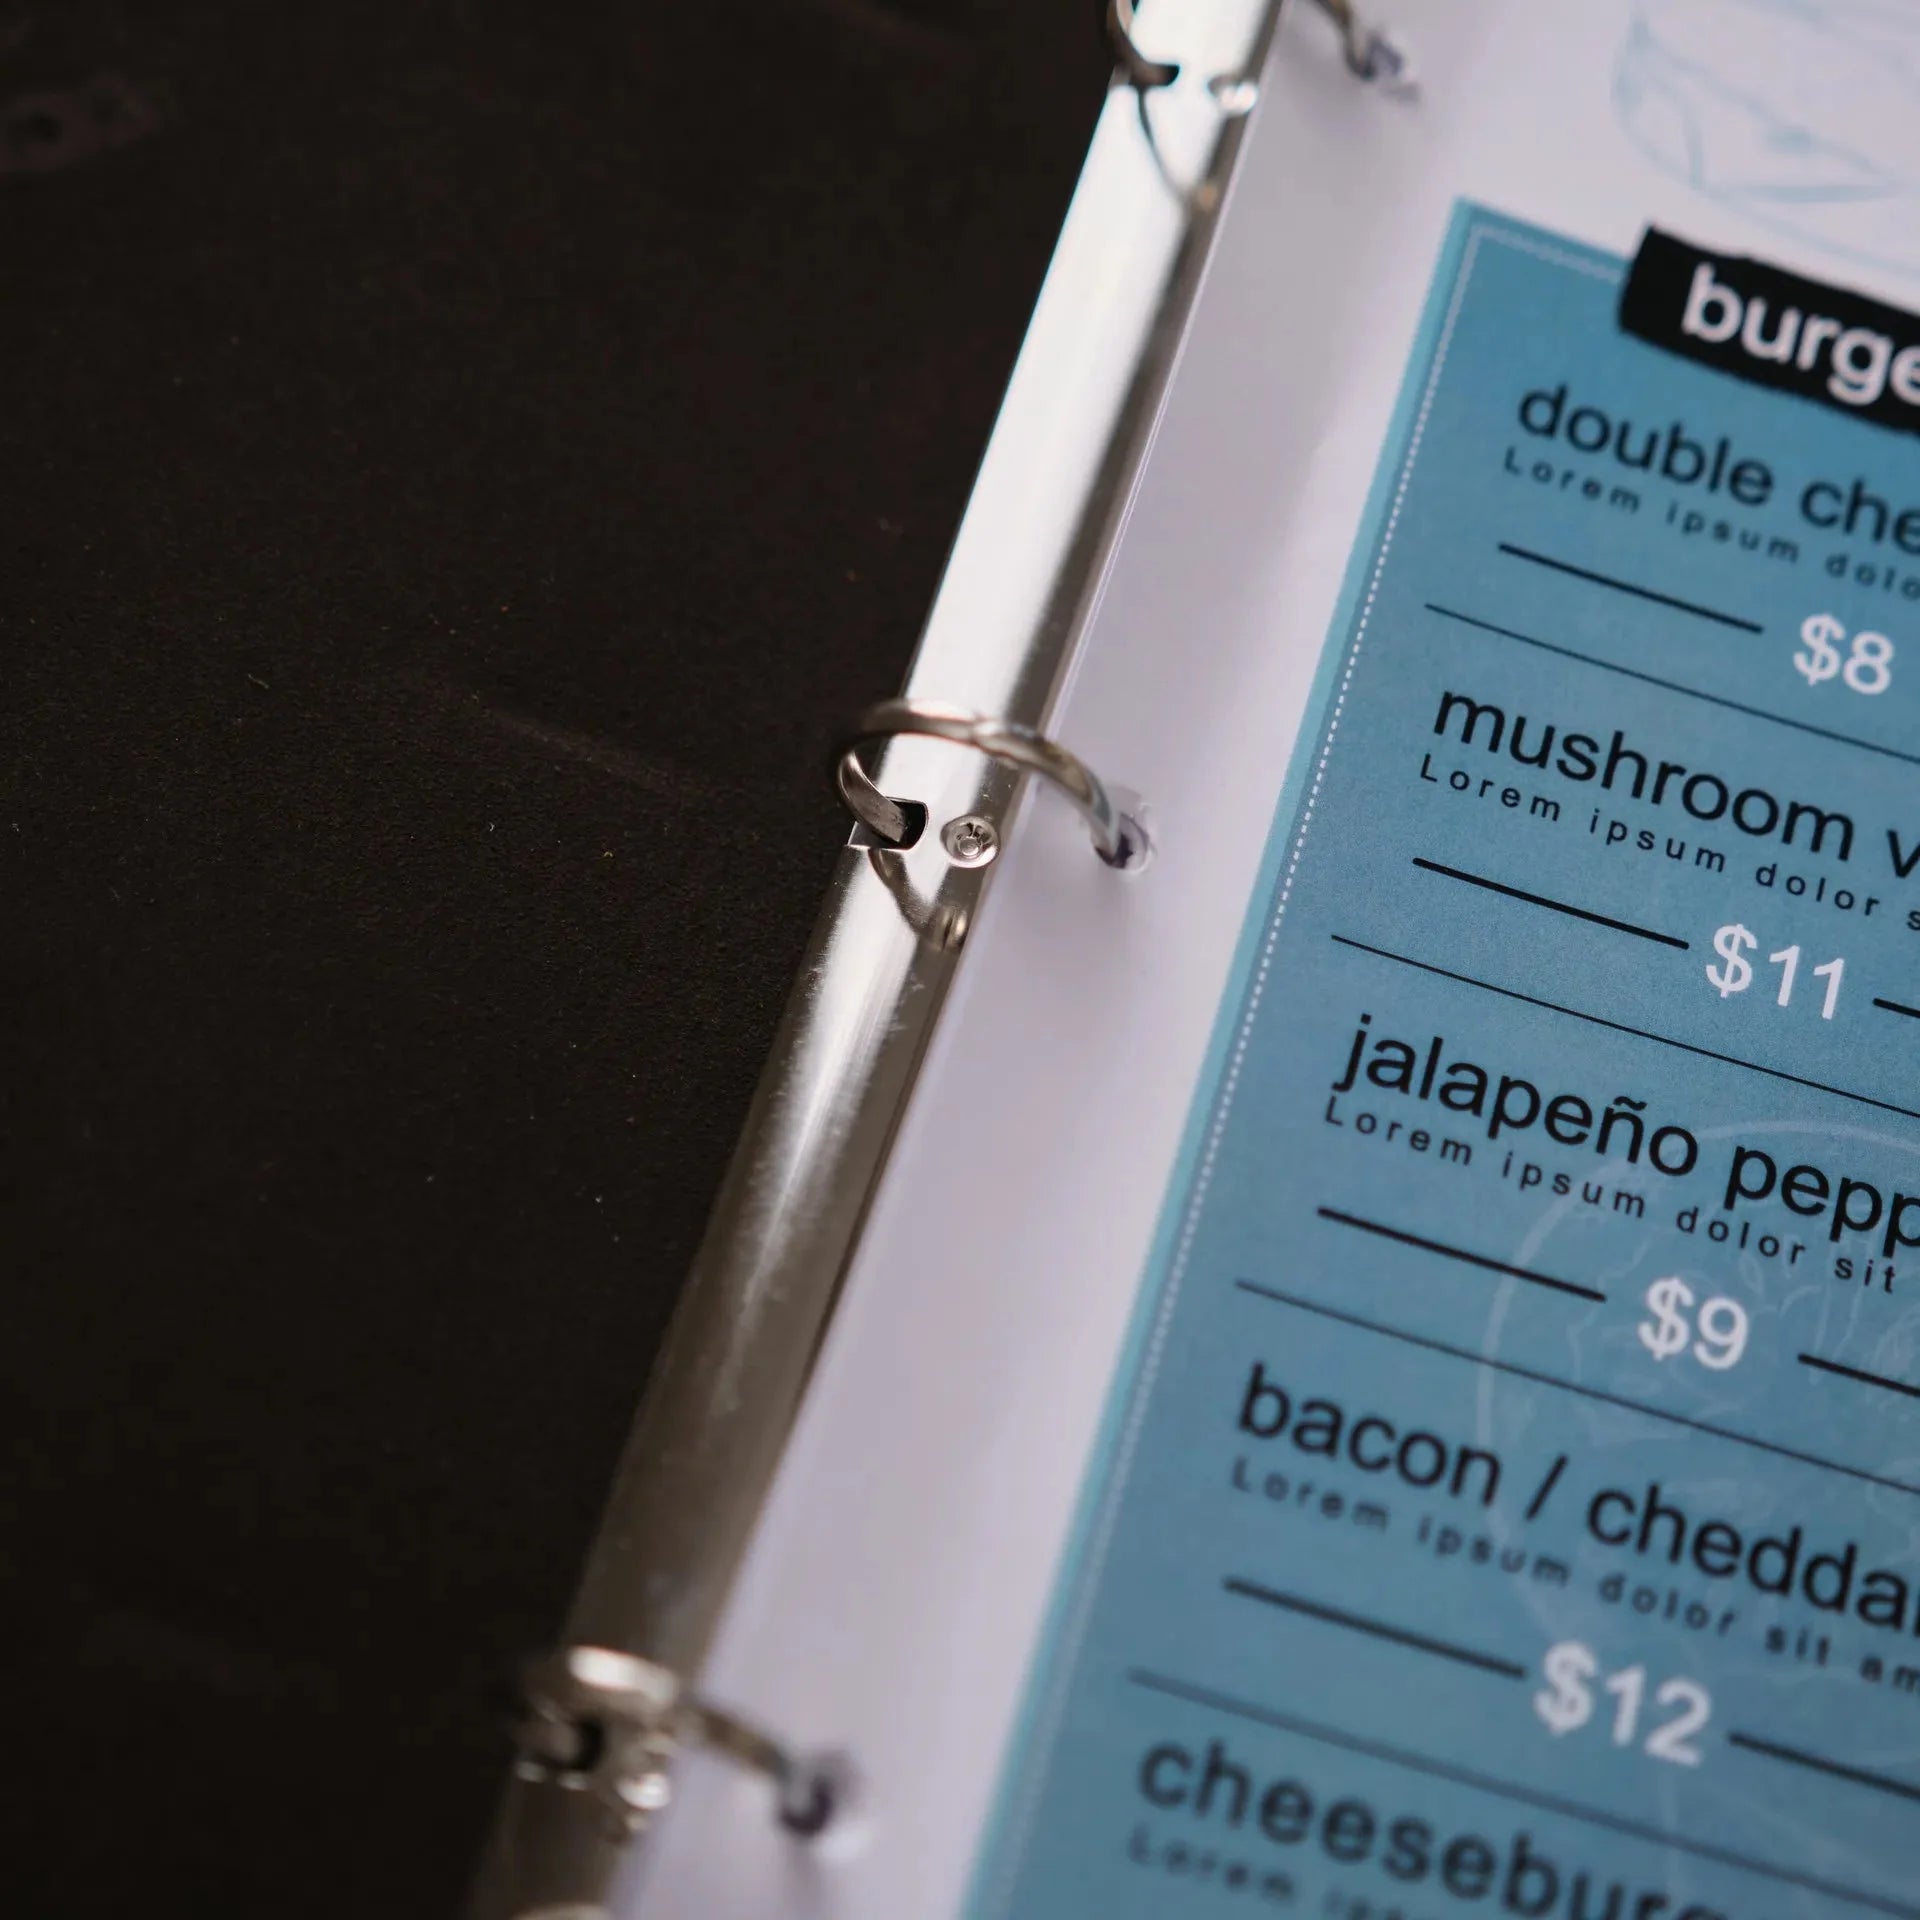 burge
double che
Lorem ipsum dolo
$8
mushroom v
Lorem ipsum dolor s
$11
jalapeño pepp
Lorem ipsum dolor sit
$9
bacon / chedda
Lorem ipsum dolor sit am
$12
cheeseburg
Lorem ips